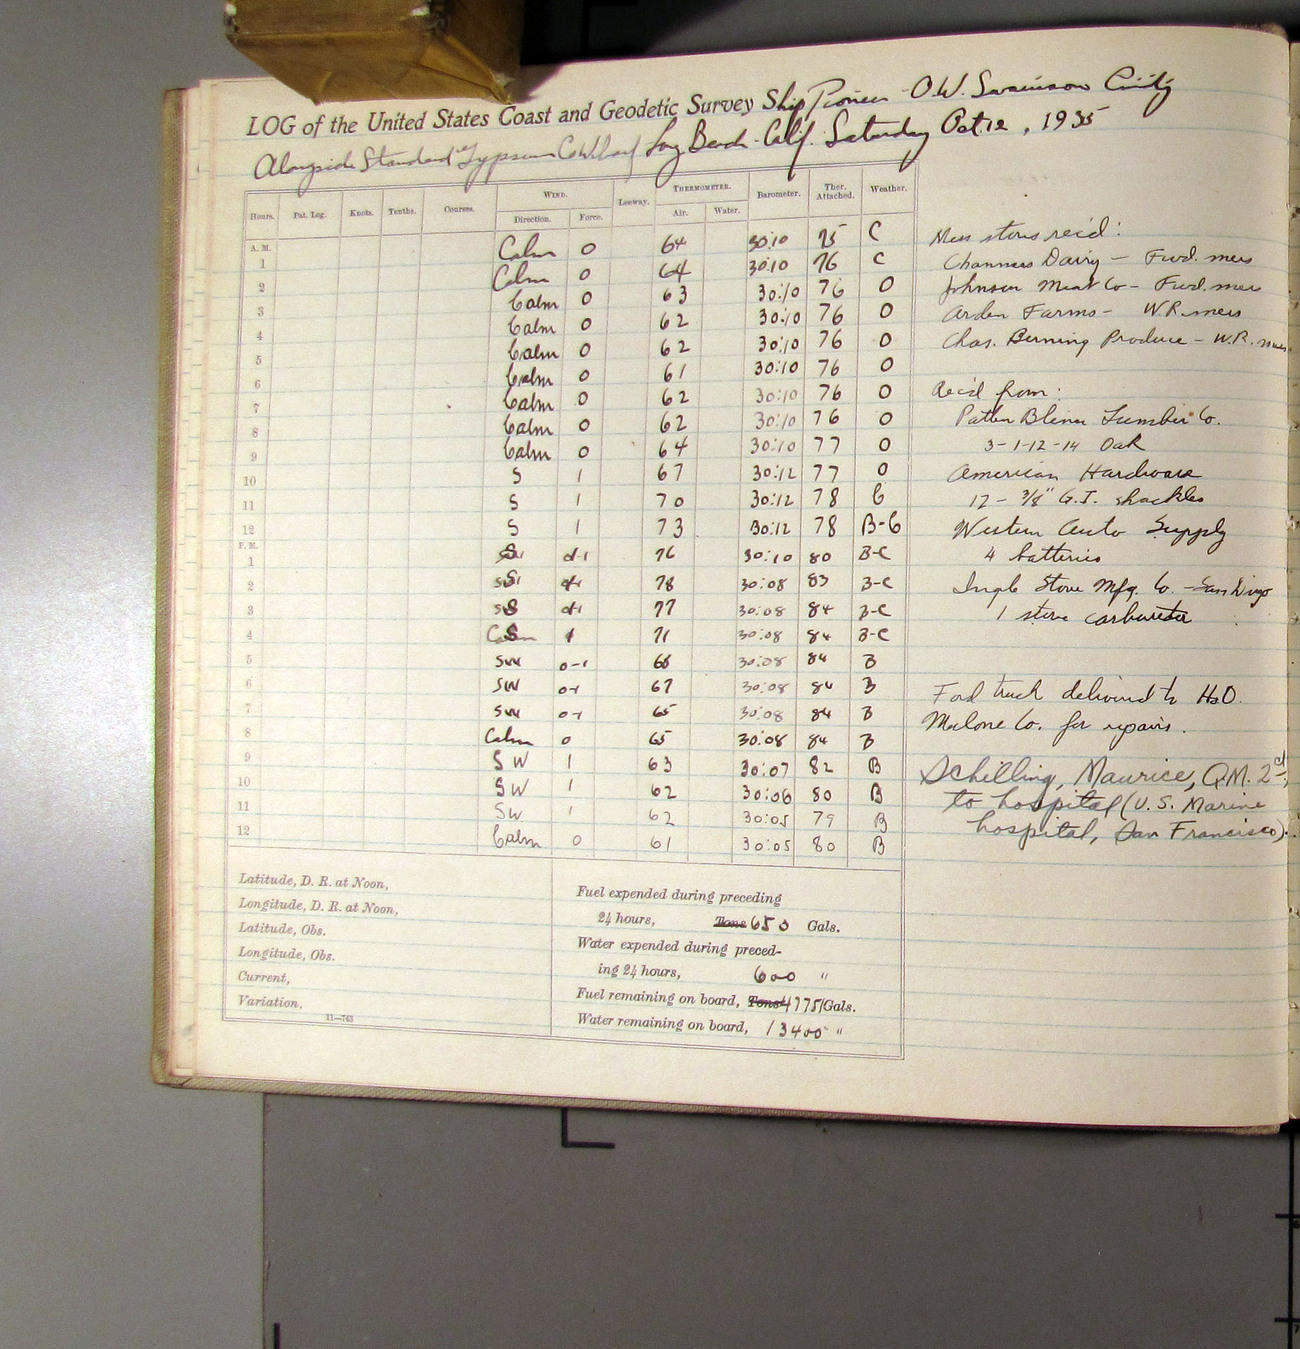 LOG of the United States Coast and Geodetic Survey Ship Pioneer - O.W. Swainson Cmd'g
Alongside Standard Gypsum Co Wharf Long Beach - Calif. Saturday Oct. 12, 1935
Hours. Pat. Log. Knots. Tenths. Courses. WIND. Leeway. THERMOMETER. Barometer. Ther. Attached. Weather.
Direction. Force. Air. Water.
A. M. Calm 0 64 30:10 75 C
1 Calm 0 64 30:10 76 C
2 Calm 0 63 30:10 76 O
3 Calm 0 62 30:10 76 O
4 Calm 0 62 30:10 76 O
5 Calm 0 61 30:10 76 O
6 Calm 0 62 30:10 76 O
7 Calm 0 62 30:10 76 O
8 Calm 0 64 30:10 77 O
9 S 1 67 30:12 77 O
10 S 1 70 30:12 78 C
11 S 1 73 30:12 78 B-C
12
P. M.
1 S 1 76 30:10 80 B-C
2 S 1 78 30:08 83 B-C
3 S 1 77 30:08 84 B-C
4 S 1 71 30:08 84 B-C
5 SW 0-1 68 30:08 84 B
6 SW 0-1 67 30:08 84 B
7 SW 0-1 65 30:08 84 B
8 Calm 0 65 30:08 84 B
9 SW 1 63 30:07 82 B
10 SW 1 62 30:06 80 B
11 SW 1 62 30:05 79 B
12 Calm 0 61 30:05 80 B
Mess stores rec'd:
Dairy - Fwd. mess
Johnson Meat Co - Fwd. mess
Arden Farms - W.R. mess
Chas. Berning Produce - W.R. mess
Rec'd from:
Patten Blinn Lumber Co.
3-1-12-14 Oak
American Hardware
12 - 3/8" G.I. shackles
Western Auto Supply
4 batteries
Ingle Stove Mfg. Co. - San Diego
1 stove carburetor
Ford truck delivered to H&O.
Malone Co. for repairs.
Schilling, Maurice, Q.M. 2cl.
to hospital (U.S. Marine
hospital, San Francisco).
Latitude, D. R. at Noon,
Longitude, D. R. at Noon,
Latitude, Obs.
Longitude, Obs.
Current,
Variation.
11—763
Fuel expended during preceding
24 hours, Tons 650 Gals.
Water expended during preced-
ing 24 hours, 600 "
Fuel remaining on board, Tons 47751 Gals.
Water remaining on board, 13400 "